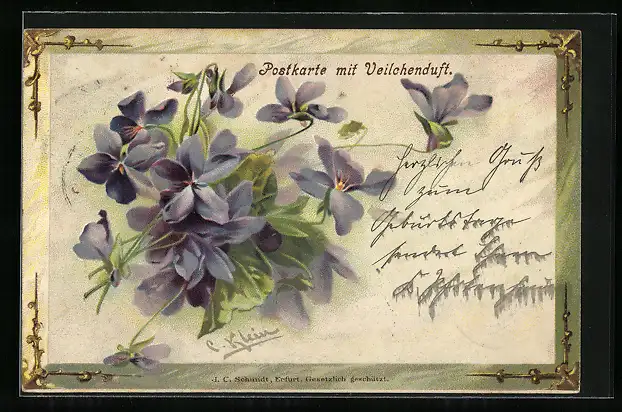 Postkarte mit Veilchenduft.
Herzlichen Gruß
zum
Geburtstage
sendet
C. Klein
J. C. Schmidt, Erfurt. Gesetzlich geschützt.